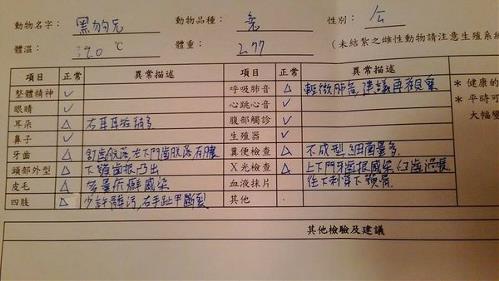 動物名字: 黑狗兄 動物品種: 兔 性別: 公
體溫: 39.0 ℃ 體重: 2.77 (未結紮之雌性動物請注意生殖系統
項目 正常 異常描述 項目 正常 異常描述
整體精神 ✓ 呼吸肺音 △ 輕微肺音,建議再觀察
眼睛 ✓ 心跳心音 ✓
耳朵 △ 右耳耳垢稍多 腹部觸診 ✓
鼻子 ✓ 生殖器 ✓
牙齒 △ 左下門齒脫落有膿 糞便檢查 △ 不成型,細菌量多
頭部外型 △ 下顎齒根凸出 X光檢查 △ 上下門牙齒根感染,臼齒過長
皮毛 △ 感染 血液抹片 往下刺穿下顎骨
四肢 △ 少許髒污,右手趾甲斷裂 其他
* 健康的
* 平時可
大幅變
其他檢驗及建議